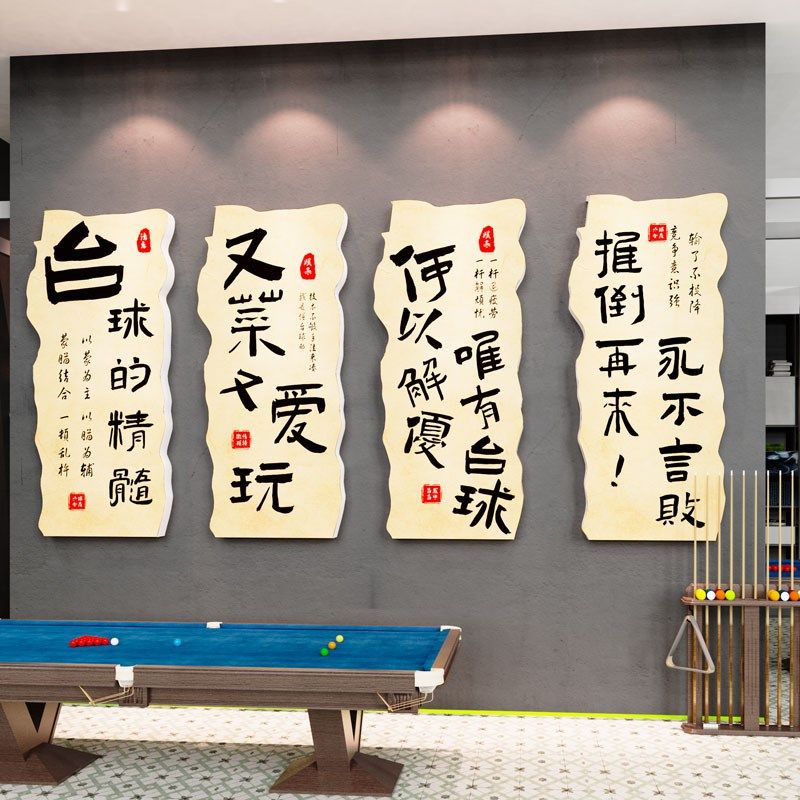 台
球的精髓
以蒙为主 以脑为辅
蒙脑结合 一顿乱杵
又菜又爱玩
何以解優
唯有台球
一杆解烦忧
推倒再來！
永不言敗
输了不投降
竞争意识强